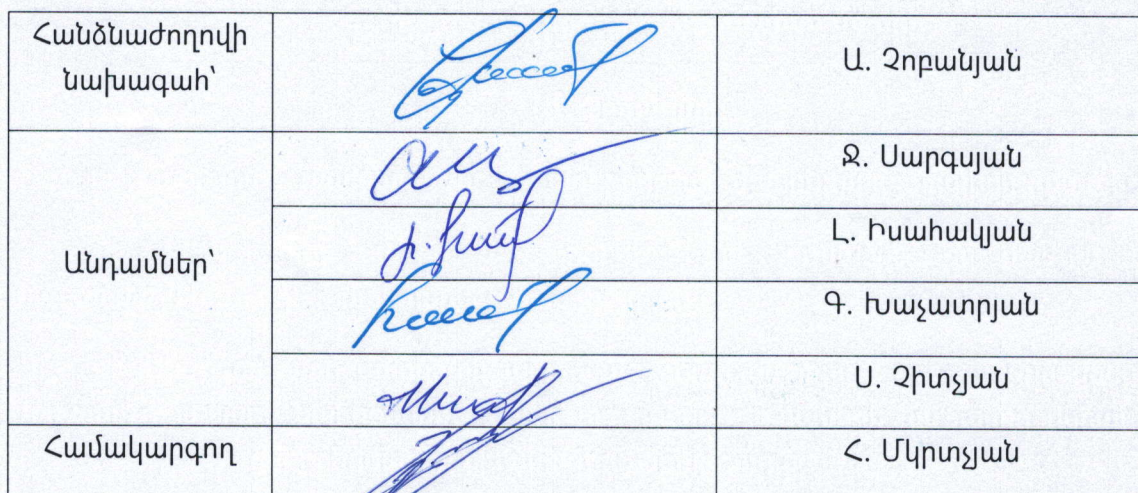 Հանձնաժողովի
նախագահ՝
Ա. Չոբանյան
Անդամներ՝
Ջ. Սարգսյան
Լ. Իսահակյան
Գ. Խաչատրյան
Ս. Չիտչյան
Համակարգող
Հ. Մկրտչյան